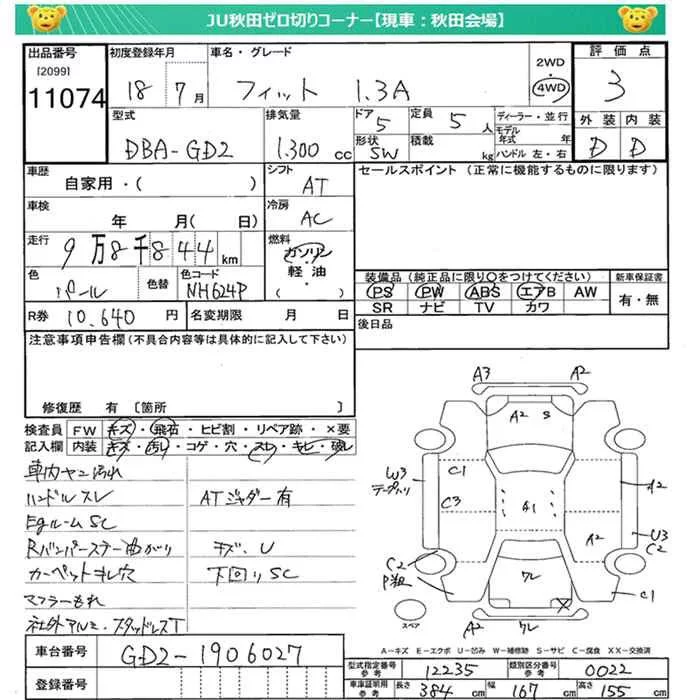 JU秋田ゼロ切りコーナー【現車：秋田会場】
出品番号 初度登録年月 車名・グレード 2WD・4WD 評価点
[2099]
11074 18 7月 フィット 1.3A 3
型式 排気量 ドア 5 定員 5人 ディーラー・並行
モデル年式 年 外装 内装
DBA-GD2 1.300cc 形状 SW 積載 kg ハンドル 左・右 D D
車歴 シフト セールスポイント（正常に機能するものに限ります）
自家用・（ ） AT
車検 冷房
年 月（ 日） AC
走行 燃料
9万8千844km ガソリン
軽油
（ ）
色 色替 色コード
パール NH624P
装備品（純正品に限り○をつけてください） 新車保証書
PS PW ABS エアB AW 有・無
SR ナビ TV カワ
R券 10.640円 名変期限 月 日 後日品
注意事項申告欄（不具合内容等は具体的に記入して下さい）
修復歴 有 〔箇所 〕
検査員 FW キズ・飛石・ヒビ割・リペア跡・×要
記入欄 内装 キズ・汚れ・コゲ・穴・スレ・キレ・破レ
車内ヤニ汚れ
ハンドルスレ ATジャダー有
EgルームSC
Rバンパーステー曲がり キズ、U
カーペットキレ穴 下回りSC
マフラーもれ
社外アルミ・スタッドレスT
A3 A2
A2 S
W3 C1 A2
C3 A1
A2 U3
C2 C2
P割 クレ C1
A2 クレ
スペア
A－キズ E－エクボ U－凹み W－補修跡 S－サビ C－腐食 XX－交換済
車台番号 GD2-1906027
登録番号
型式指定番号 参考 12235 類別区分番号 参考 0022
車庫証明用 参考 長さ 384cm 幅 167cm 高さ 155cm